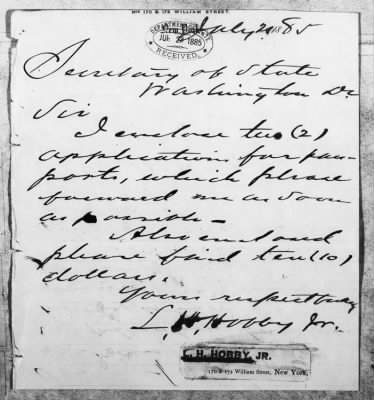 Nos 170 & 172 WILLIAM STREET.
New York, July 21 1885
DEPARTMENT OF STATE
JUL 23 1885
RECEIVED.
Secretary of State
Washington Dc
Sir
I enclose two (2)
applications for pass-
ports, which please
forward me as soon
as possible -
Also enclosed
please find ten (10)
dollars.
Yours respectfully
L. H. Hobby Jr.
L. H. HOBBY, JR.
170 & 172 William Street, New York.